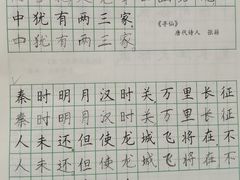 中犹有两三家
中犹有两三家.
《寻仙》
唐代诗人 张籍
秦时明月汉时关，万里长征
秦时明月汉时关，万里长征
人未还。但使龙城飞将在，不
人未还。但使龙城飞将在，不